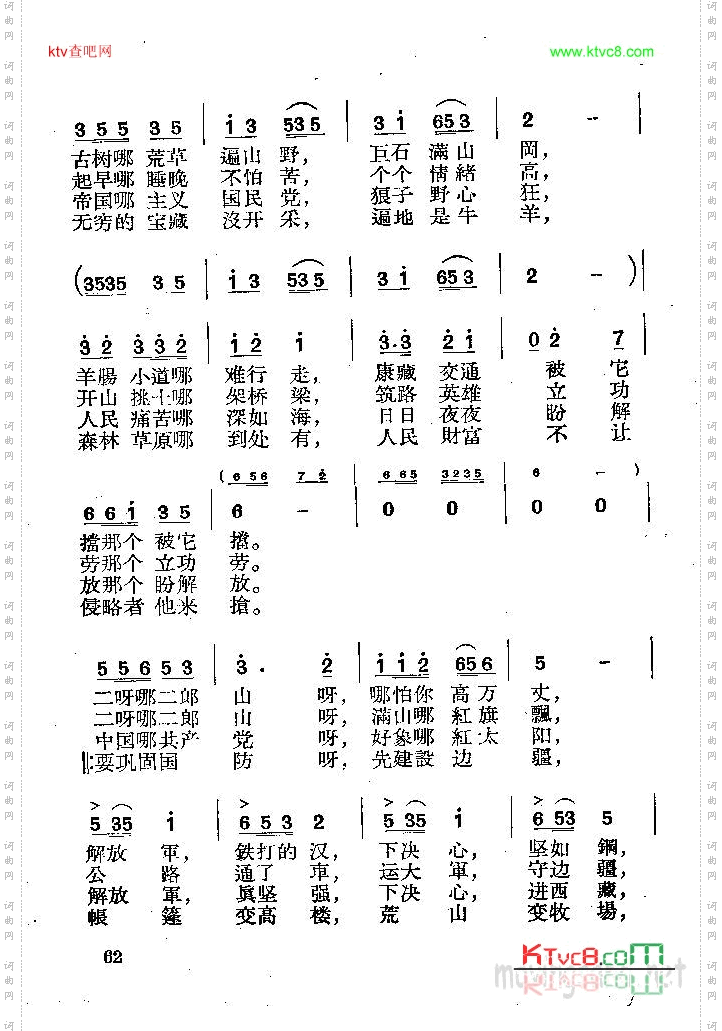 ktv查吧网 www.ktvc8.com
3 5 5 3 5 | i 3 535 | 3 i 653 | 2 – |
古树哪 荒草 遍山野， 巨石 满山 岡，
起早哪 睡晚 不怕苦， 个个 情緒 高，
帝国哪 主义 国民党， 狠子 野心 狂，
无穷的 宝藏 沒开采， 遍地 是牛 羊，
(3535 3 5 | i 3 535 | 3 i 653 | 2 –) |
3 2 3 3 2 | 2 2 i | 3. 3 2 i | 0 2 7 |
羊腸 小道哪 难行走， 康藏 交通 被 它
开山 挑土哪 架桥梁， 筑路 英雄 立 功
人民 痛苦哪 深如海， 日日 夜夜 盼 解
森林 草原哪 到处有， 人民 財富 不 让
(6 5 6 7 2 | 6 6 5 3 2 3 5 | 6 –)
6 6 i 3 5 | 6 – | 0 0 | 0 0 |
擋那个 被它 擋。
劳那个 立功 劳。
放那个 盼解 放。
侵略者 他来 搶。
5 5 6 5 3 | 3 . 2 | i i 2 6 5 6 | 5 – |
二呀哪二郎 山 呀， 哪怕你 高万 丈，
二呀哪二郎 山 呀， 滿山哪 紅旗 飄，
中国哪共产 党 呀， 好象哪 紅太 阳，
要巩固国 防 呀， 先建設 边 疆，
5 35 i | 6 5 3 2 | 5 35 i | 6 53 5 |
解放 軍， 鉄打的 汉， 下决 心， 坚如 鋼，
公 路 通了 車， 运大 軍， 守边 疆，
解放 軍， 眞坚 强， 下决 心， 进西 藏，
帳 篷 变高 楼， 荒 山 变牧 場，
62
KTvc8.com
词曲网